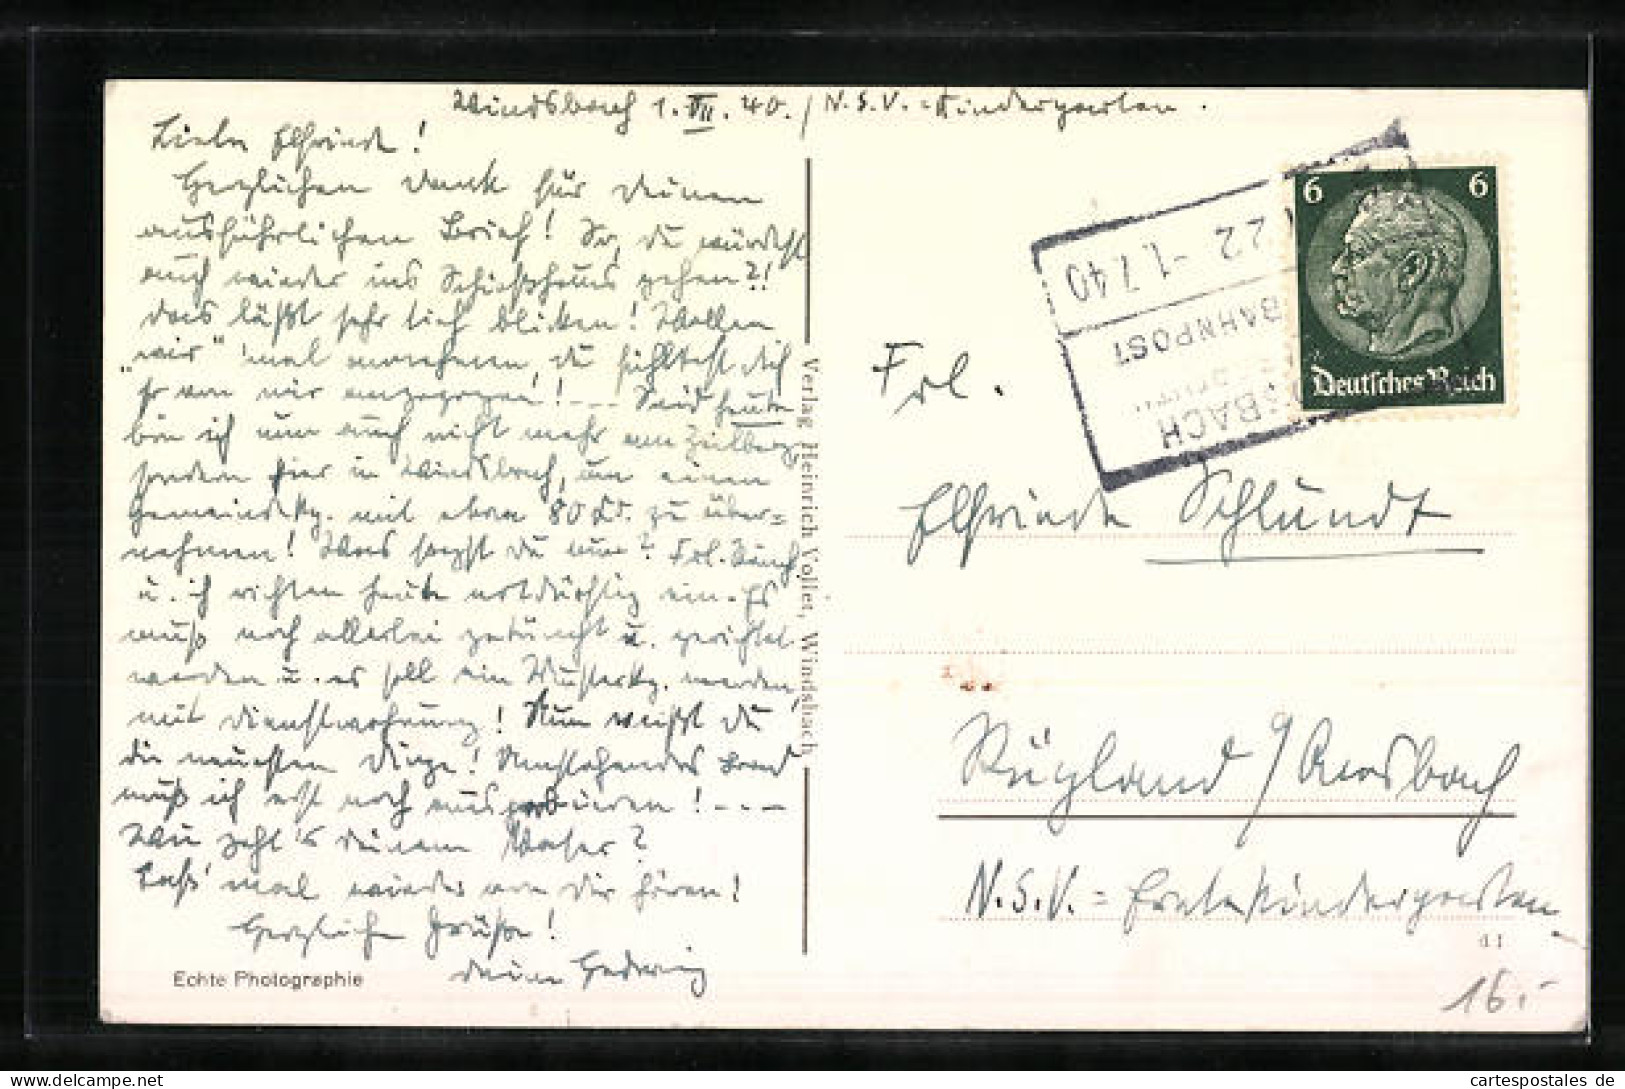 Windsbach 1. VII. 40. / N.S.V.=Kindergarten.
Liebe Elfriede!
Herzlichen Dank für Deinen
ausführlichen Brief! So, Du würdest
auch wieder ins Schießhaus gehen?!
Das läßt sehr tief blicken! Wollen
"wir" mal annehmen, Du fühltest Dich
so von mir angezogen! ! --- Seid heute
bin ich nun auch nicht mehr am Zeilberg,
sondern hier in Windsbach, um einen
Gemeindekg. mit etwa 80 Kd. zu über=
nehmen! Was sagst Du nun? Frl.
u. ich richten heute notdürftig ein. Es
muß noch allerlei getüncht u. gerichtet
werden u. es soll ein Musterkg. werden,
mit Dienstwohnung! Nun weißt Du
die neuesten Dinge! Umstehendes Bad
muß ich erst noch ausprobieren! ---
Wie geht's Deinem Vater?
Laß' mal wieder von Dir hören!
Herzliche Grüße!
Deine Hedwig
Echte Photographie
Verlag Heinrich Voller, Windsbach
6 6
Deutsches Reich
22 -1.7.40
BAHNPOST
SBACH
Frl.
Elfriede Schlundt
Rügland / Ansbach
N.S.V.=Erntekindergarten
d 1
16.-
cartespostales de